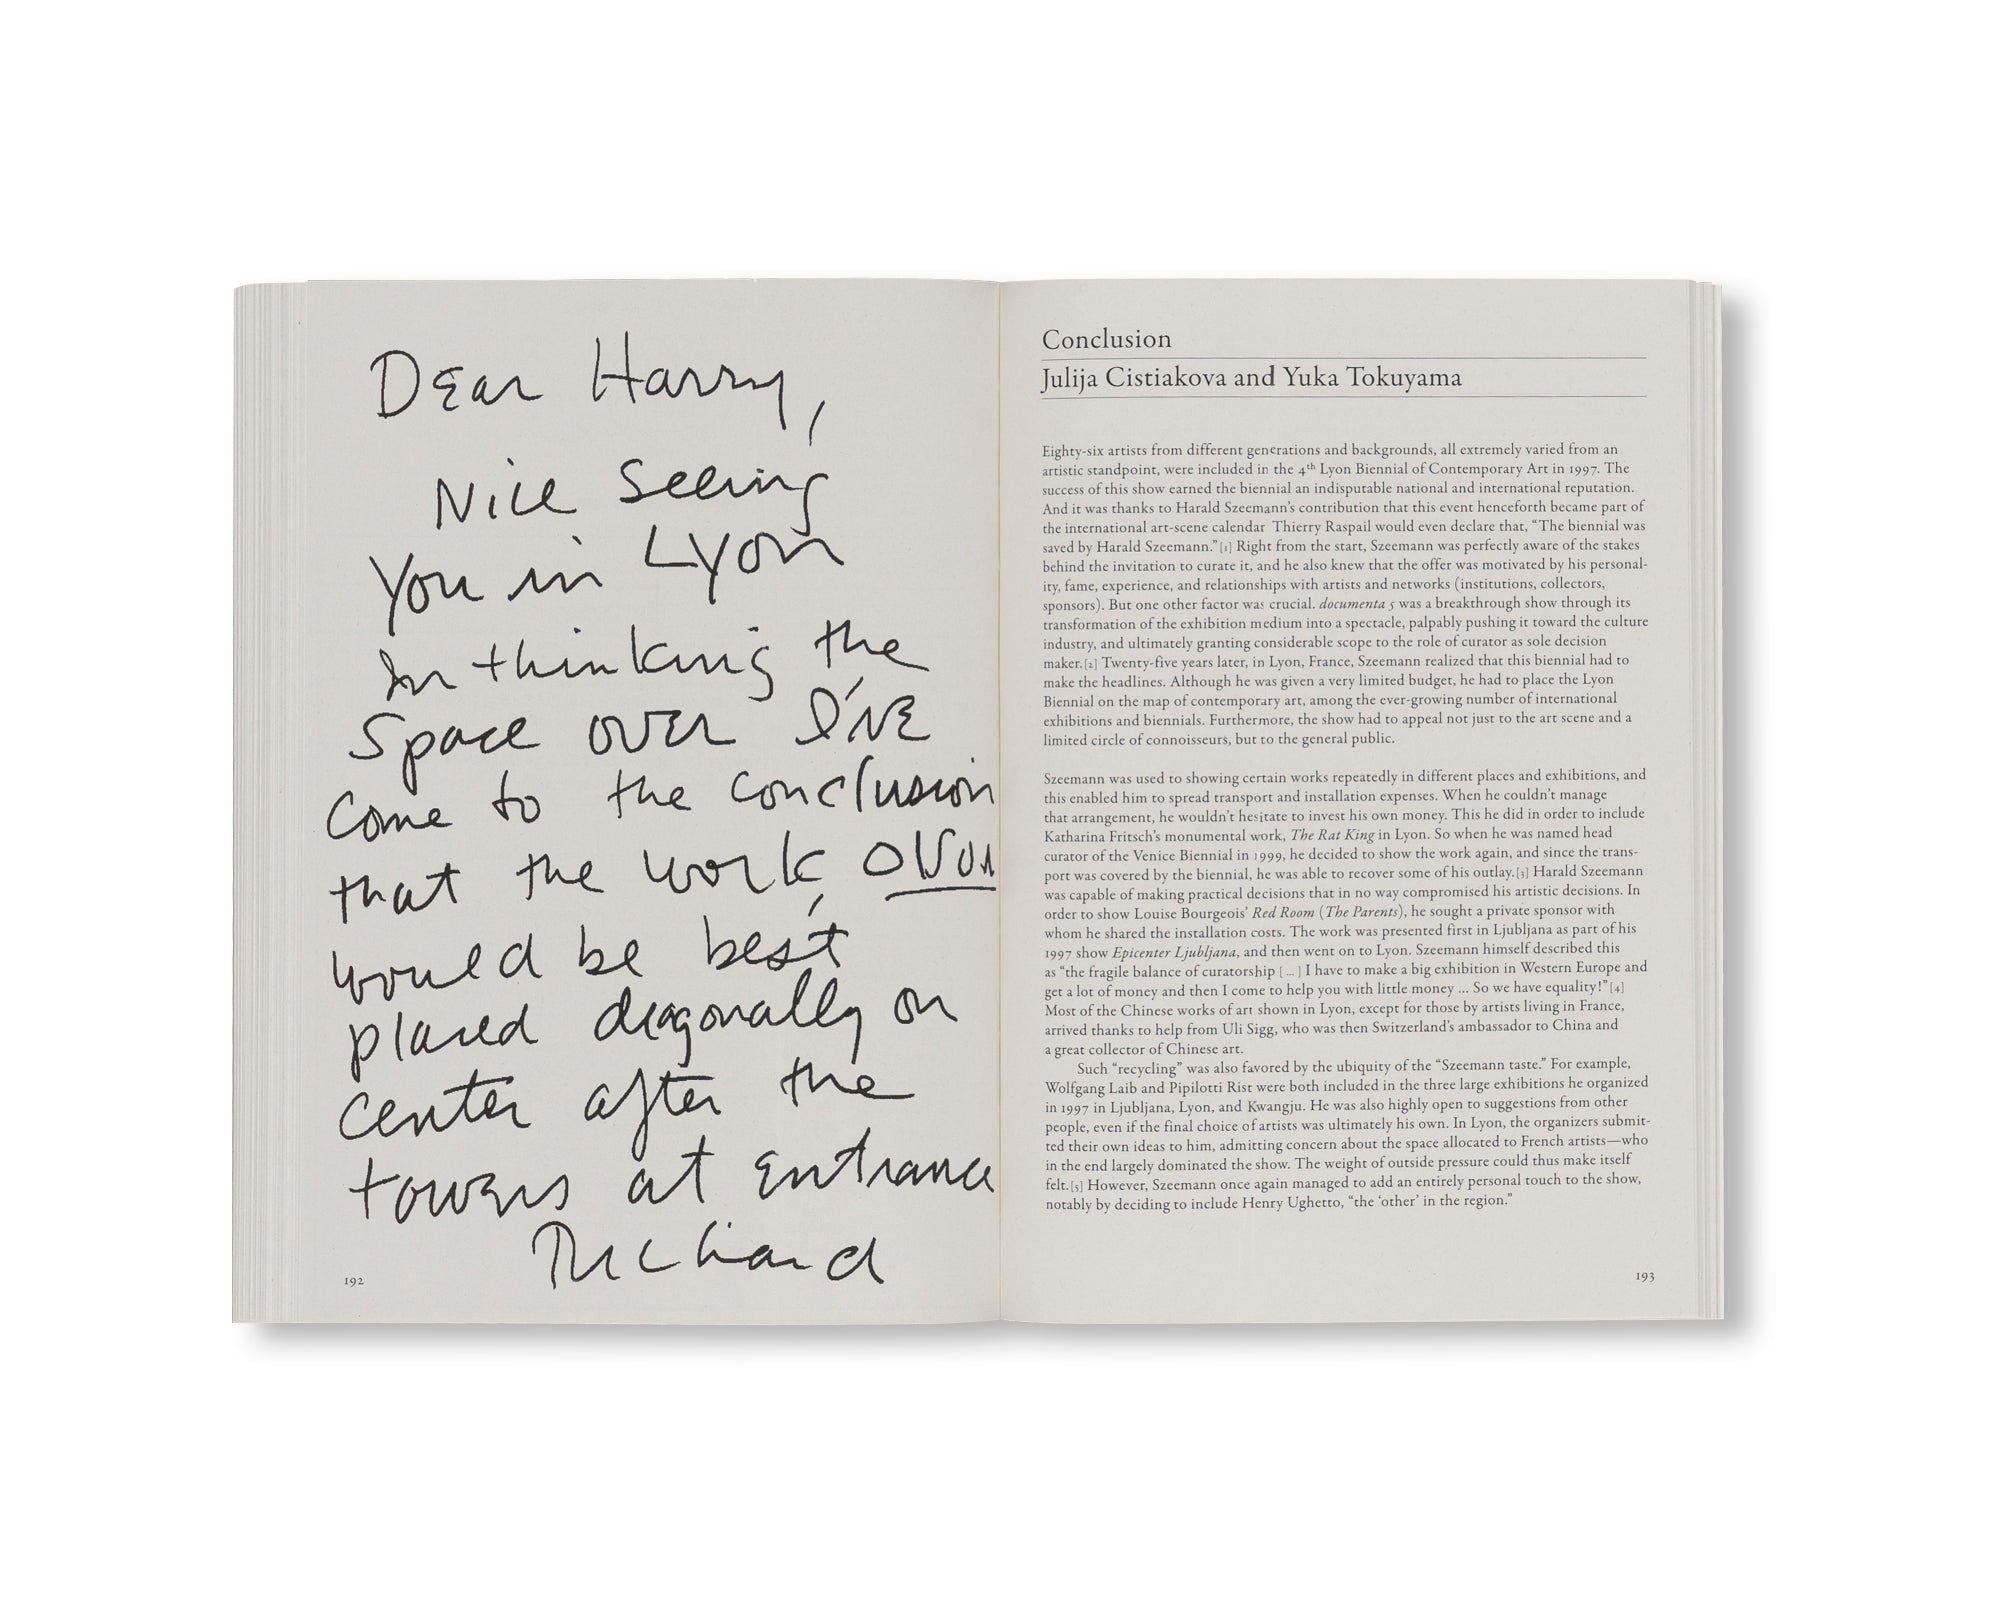 Dear Harry,
Nice seeing
you in Lyon
In thinking the
space over I've
come to the conclusion
that the work,
would be best
placed diagonally on
center after the
towers at entrance
Richard
192
Conclusion
Julija Cistiakova and Yuka Tokuyama
Eighty-six artists from different generations and backgrounds, all extremely varied from an
artistic standpoint, were included in the 4th Lyon Biennial of Contemporary Art in 1997. The
success of this show earned the biennial an indisputable national and international reputation.
And it was thanks to Harald Szeemann's contribution that this event henceforth became part of
the international art-scene calendar Thierry Raspail would even declare that, “The biennial was
saved by Harald Szeemann.”[1] Right from the start, Szeemann was perfectly aware of the stakes
behind the invitation to curate it, and he also knew that the offer was motivated by his personal-
ity, fame, experience, and relationships with artists and networks (institutions, collectors,
sponsors). But one other factor was crucial. documenta 5 was a breakthrough show through its
transformation of the exhibition medium into a spectacle, palpably pushing it toward the culture
industry, and ultimately granting considerable scope to the role of curator as sole decision
maker.[2] Twenty-five years later, in Lyon, France, Szeemann realized that this biennial had to
make the headlines. Although he was given a very limited budget, he had to place the Lyon
Biennial on the map of contemporary art, among the ever-growing number of international
exhibitions and biennials. Furthermore, the show had to appeal not just to the art scene and a
limited circle of connoisseurs, but to the general public.
Szeemann was used to showing certain works repeatedly in different places and exhibitions, and
this enabled him to spread transport and installation expenses. When he couldn't manage
that arrangement, he wouldn't hesitate to invest his own money. This he did in order to include
Katharina Fritsch's monumental work, The Rat King in Lyon. So when he was named head
curator of the Venice Biennial in 1999, he decided to show the work again, and since the trans-
port was covered by the biennial, he was able to recover some of his outlay.[3] Harald Szeemann
was capable of making practical decisions that in no way compromised his artistic decisions. In
order to show Louise Bourgeois' Red Room (The Parents), he sought a private sponsor with
whom he shared the installation costs. The work was presented first in Ljubljana as part of his
1997 show Epicenter Ljubljana, and then went on to Lyon. Szeemann himself described this
as “the fragile balance of curatorship [ ... ] I have to make a big exhibition in Western Europe and
get a lot of money and then I come to help you with little money ... So we have equality!”[4]
Most of the Chinese works of art shown in Lyon, except for those by artists living in France,
arrived thanks to help from Uli Sigg, who was then Switzerland's ambassador to China and
a great collector of Chinese art.
Such “recycling” was also favored by the ubiquity of the “Szeemann taste.” For example,
Wolfgang Laib and Pipilotti Rist were both included in the three large exhibitions he organized
in 1997 in Ljubljana, Lyon, and Kwangju. He was also highly open to suggestions from other
people, even if the final choice of artists was ultimately his own. In Lyon, the organizers submit-
ted their own ideas to him, admitting concern about the space allocated to French artists—who
in the end largely dominated the show. The weight of outside pressure could thus make itself
felt.[5] However, Szeemann once again managed to add an entirely personal touch to the show,
notably by deciding to include Henry Ughetto, “the ‘other’ in the region.”
193